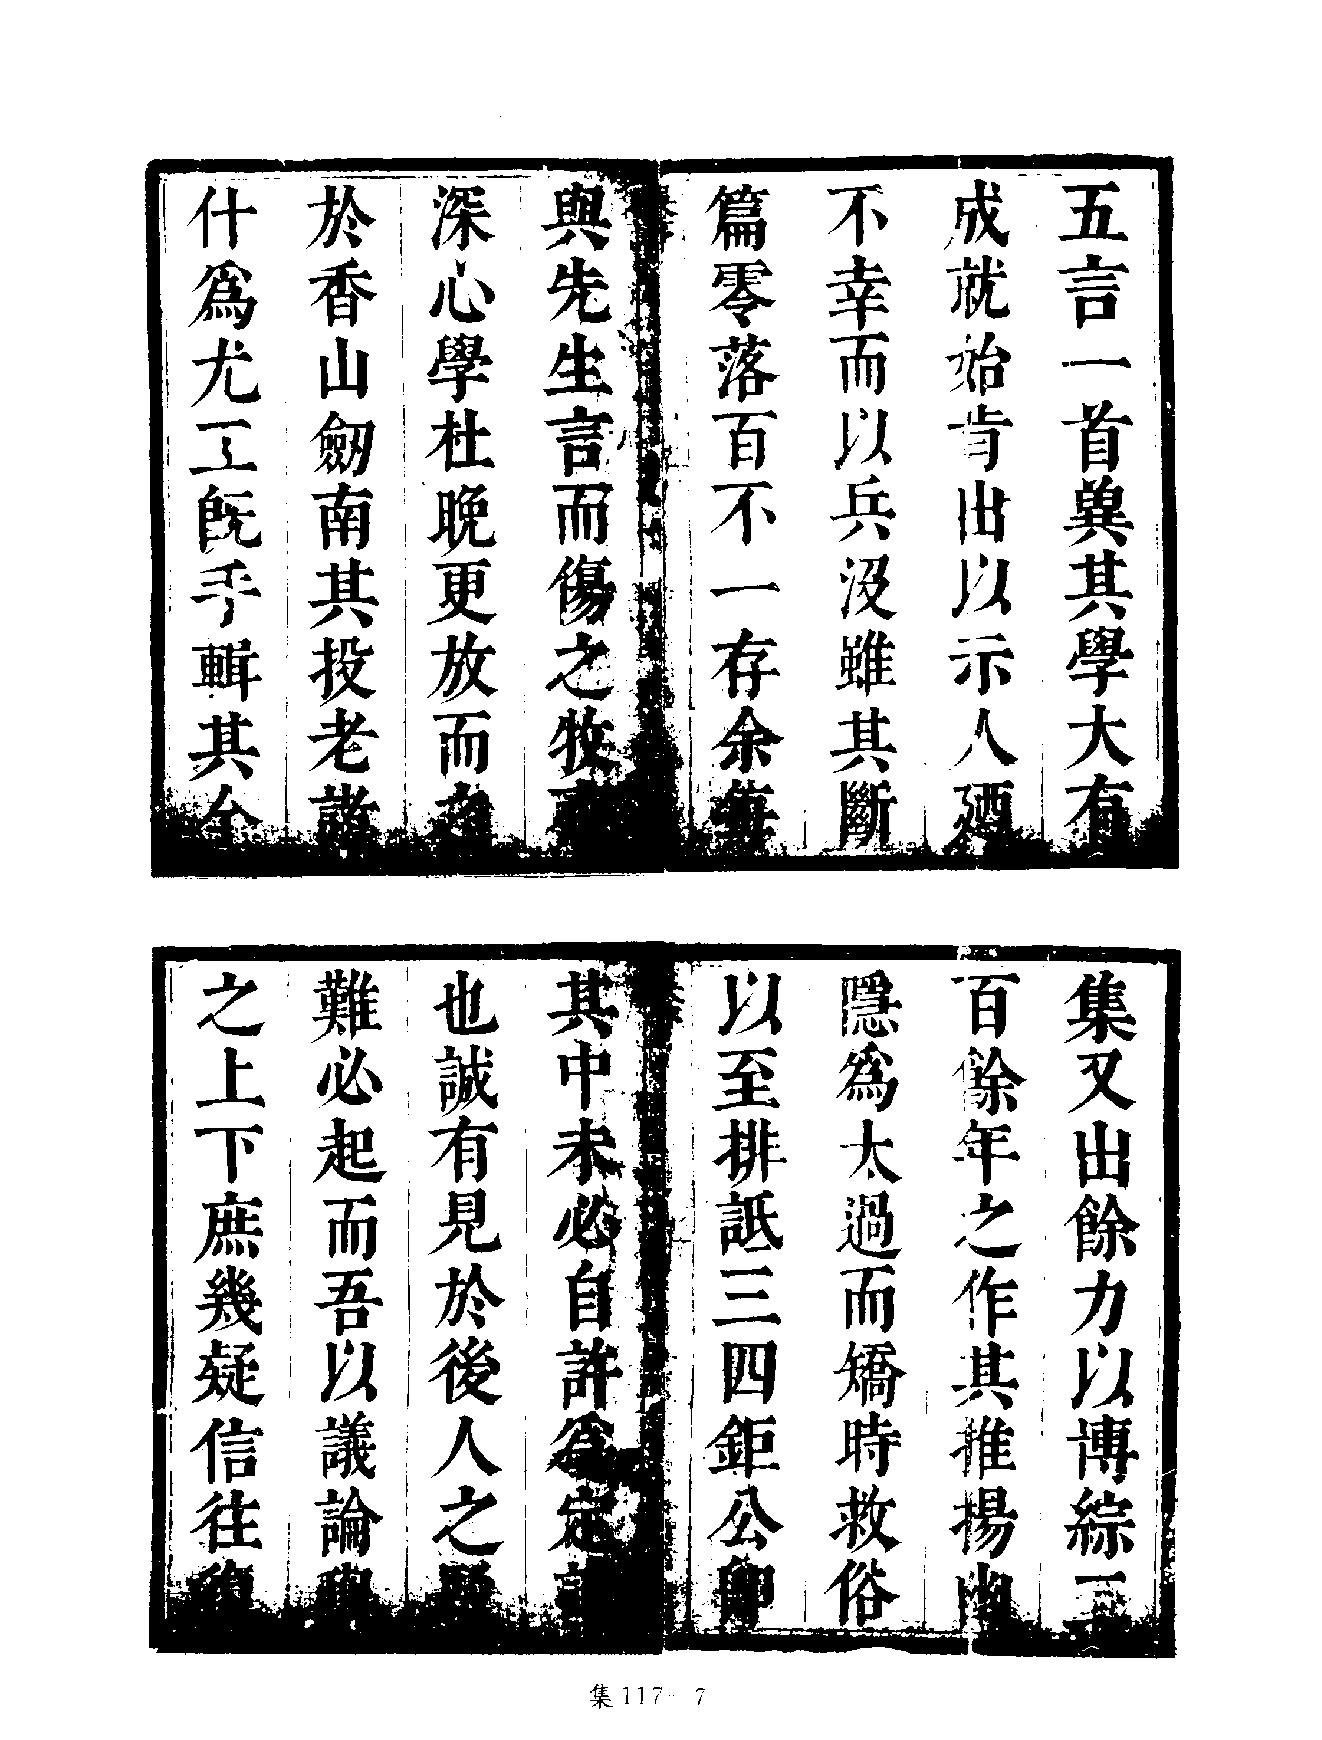 五言一首冀其學大有
成就始肯出以示人廼
不幸而以兵没雖其斷
篇零落百不一存余每
與先生言而傷之牧
深心學杜晚更放而之
於香山劒南其投老諸
什爲尤工既乎輯其全
集又出餘力以博綜二
百餘年之作其推揚幽
隱爲太過而矯時救俗
以至排詆三四鉅公卽
其中未必自許爲定
也誠有見於後人之
難必起而吾以議論與
之上下庶幾疑信往復
集117-7